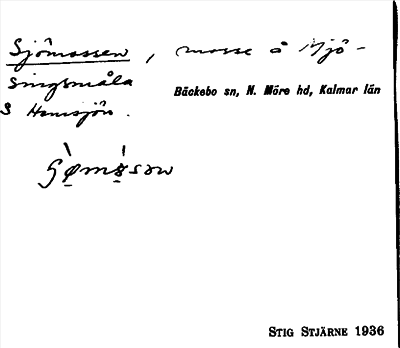 Sjömossen, mosse å Mjö-
singsmåla
S Hemsjön.
Bäckebo sn, N. Möre hd, Kalmar län
STIG STJÄRNE 1936